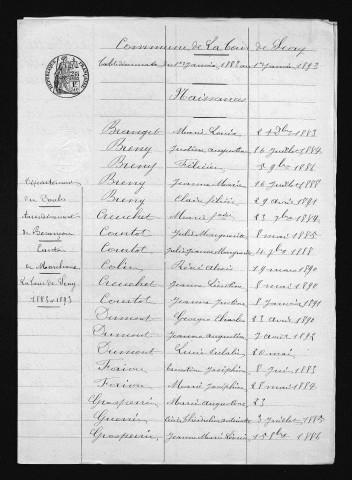 Commune de La Tour de Sçay
Table décennale du 1er janvier 1883 au 1er janvier 1893
Naissances
Département
du Doubs
Arrondissement
de Besançon
Canton
de Marchaux
La Tour de Sçay
1883 à 1893
Marie Louise 1883
Breny Justine Augustine 26 juillet 1884
Breny Félicien 5 9bre 1886
Breny Jeanne Marie 26 juillet 1888
Breny Clair 29 avril 1891
Creuchet Marie 1884
Courtot Julie Marguerite 8 mai 1885
Courtot Julie Jeanne Marguerite 4 7bre 1888
Colin René Alexis 19 mars 1890
Creuchet Jeanne 8 mai 1890
Courtot Jeanne Justine 8 janvier 1891
Dumont Georges Charles 23 avril 1890
Dumont Jeanne Augustine 7 août 1892
Dumont Lucie Eulalie 20 mai
Faivre Joséphine 8 juin 1883
Faivre Marie Joséphine 28 mai 1884
Grosperrin Marie Augustine 23
Guerrin 3 juillet 1885
Grosperrin Jeanne Marie Louise 15 8bre 1886